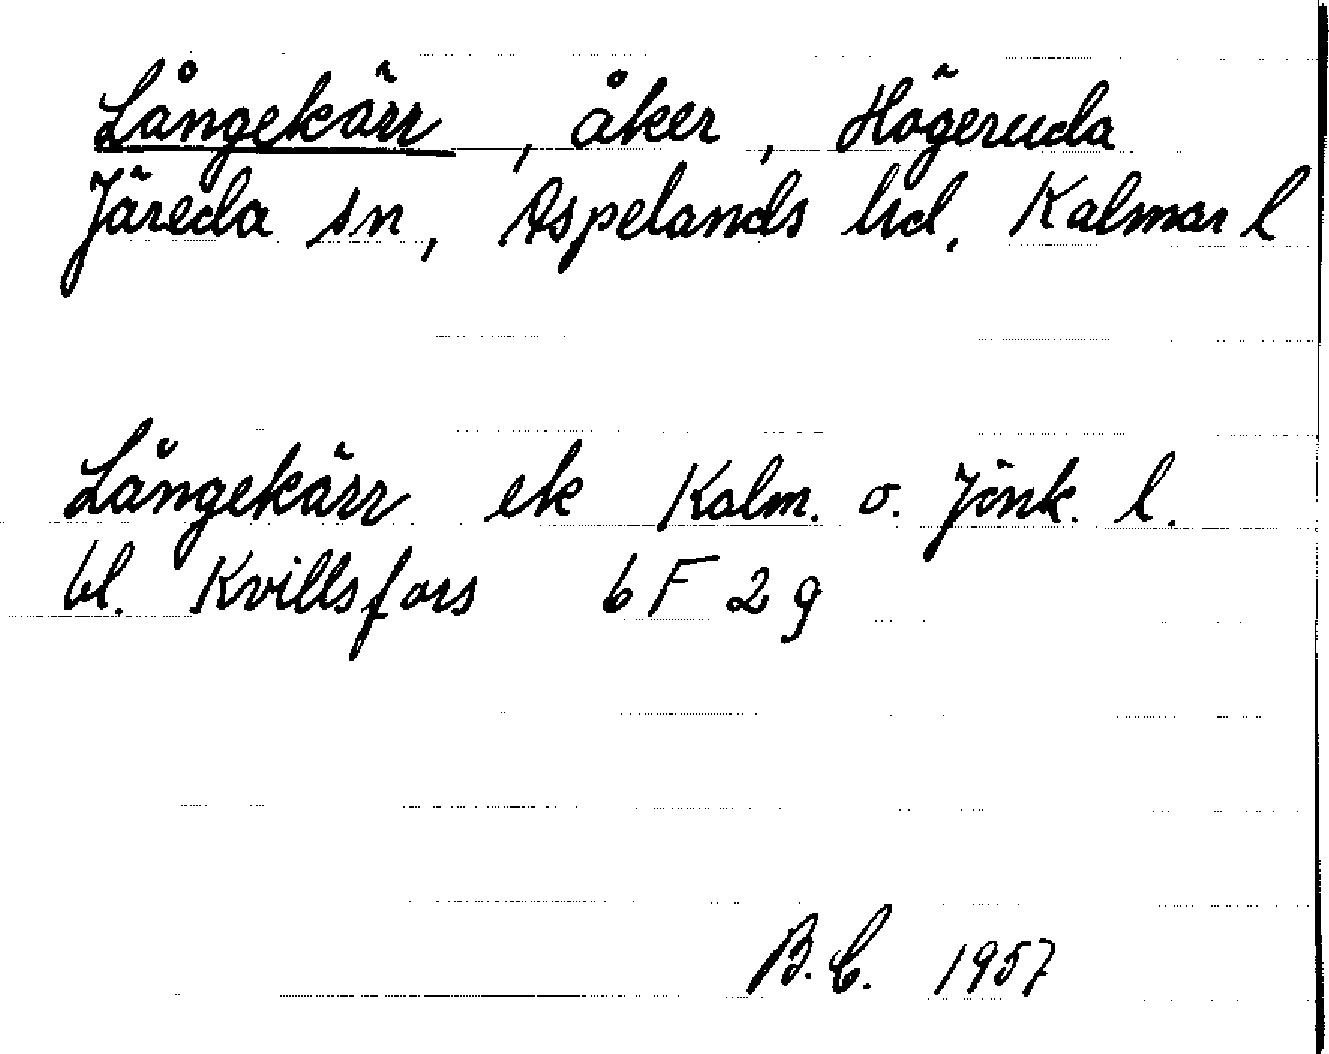 Långekärr, åker, Högeruda
Järeda sn, Aspelands hd. Kalmar l
Långekärr ek Kalm. o. Jönk. l.
bl. Kvillsfors 6F 2g
B.C. 1957